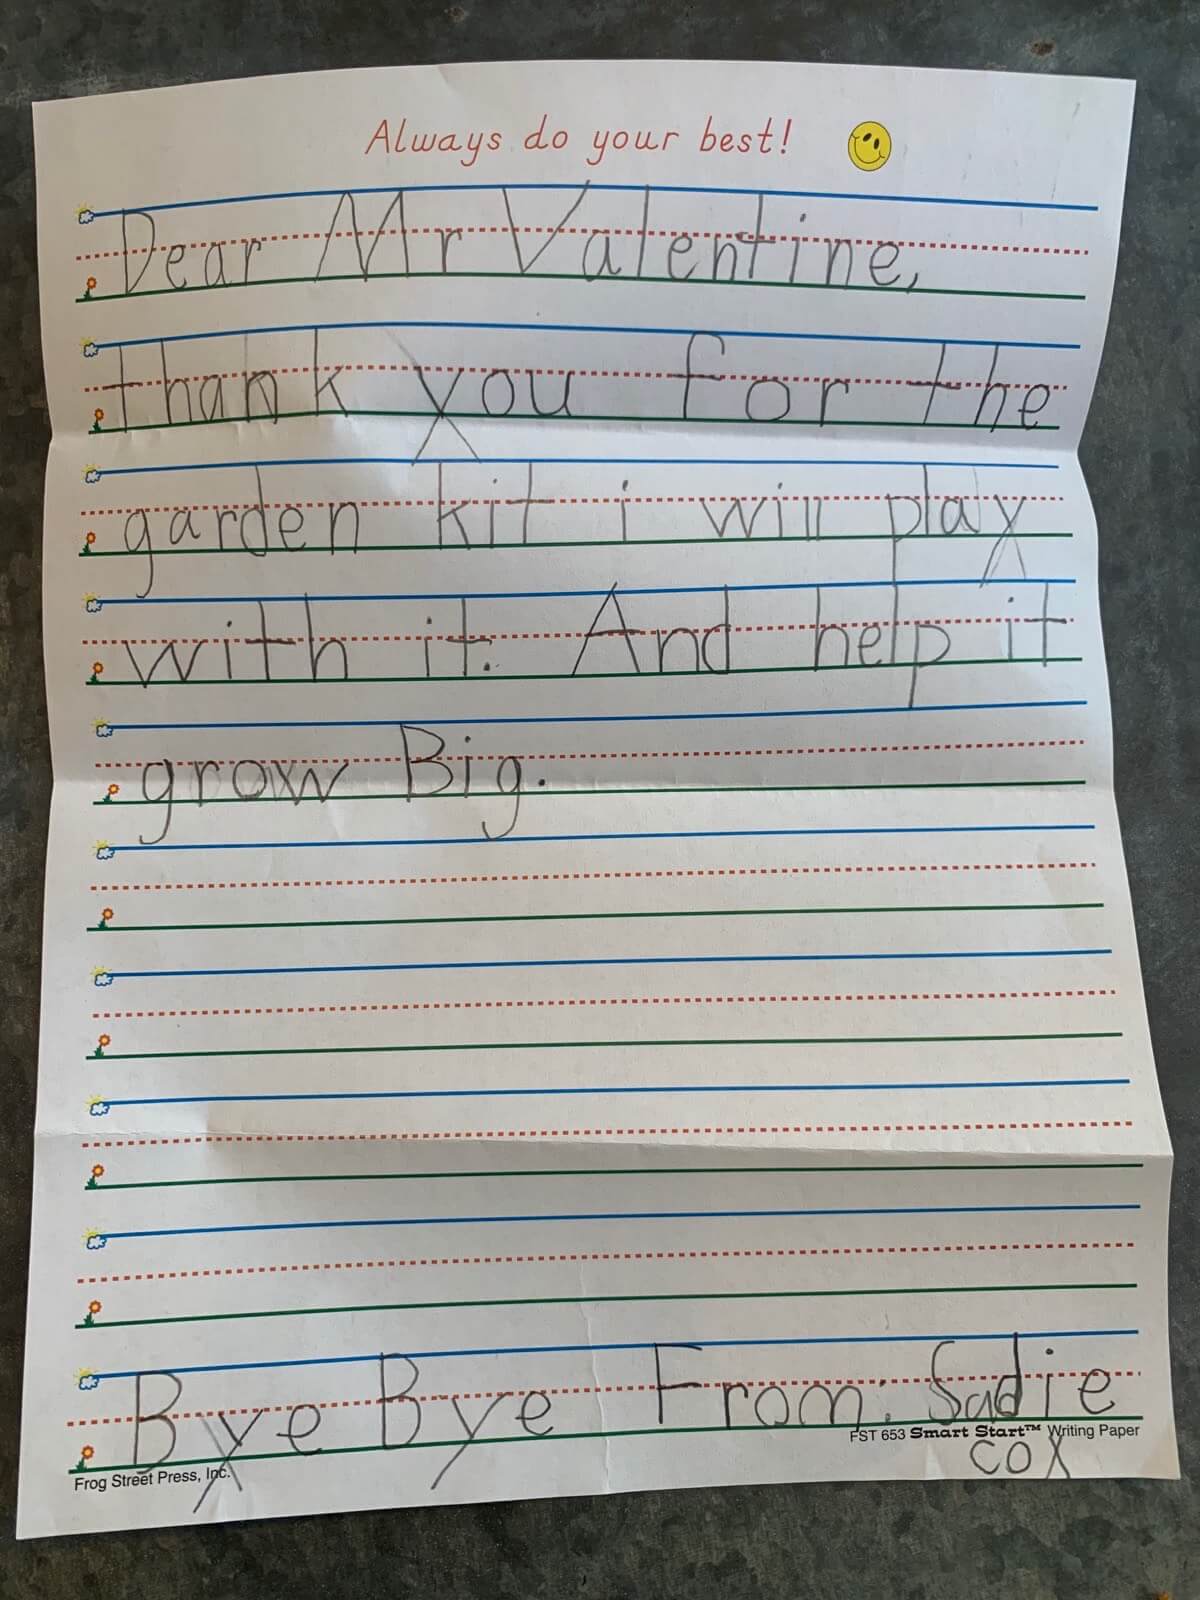 Always do your best!
Dear Mr Valentine,
thank you for the
garden kit i will play
with it. And help it
grow Big.
Bye Bye From: Sadie
FST 653 Smart Start™ Writing Paper
cox
Frog Street Press, Inc.